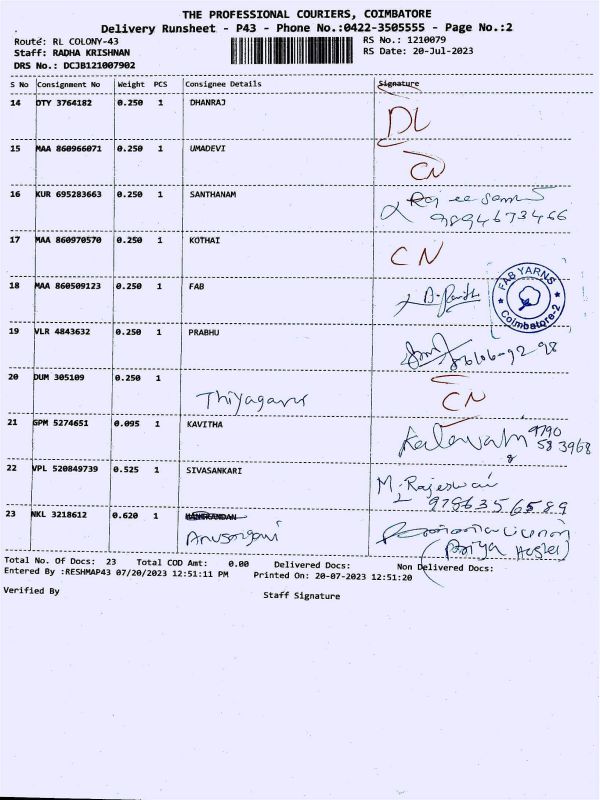 THE PROFESSIONAL COURIERS, COIMBATORE
Delivery Runsheet - P43 - Phone No.:0422-3505555 - Page No.:2
Route: RL COLONY-43
RS No.: 1210079
Staff: RADHA KRISHNAN
RS Date: 20-Jul-2023
DRS No.: DCJB121007902
S No Consignment No Weight PCS Consignee Details Signature
14 OTY 3764182 0.250 1 DHANRAJ
DL
15 MAA 860966071 0.250 1 UMADEVI
CN
16 KUR 695283663 0.250 1 SANTHANAM
9894673466
17 MAA 860970570 0.250 1 KOTHAI
CN
18 MAA 860509123 0.250 1 FAB
FAB YARNS
Coimbatore-2
19 VLR 4843632 0.250 1 PRABHU
20 DUM 305109 0.250 1
CN
21 GPM 5274651 0.095 1 KAVITHA
9790
583968
22 VPL 520849739 0.525 1 SIVASANKARI
M. Rajeswari
9786356589
23 NKL 3218612 0.620 1
(Priya Hostel)
Total No. Of Docs: 23 Total COD Amt: 0.00 Delivered Docs: Non Delivered Docs:
Entered By :RESHMAP43 07/20/2023 12:51:11 PM Printed On: 20-07-2023 12:51:20
Verified By
Staff Signature